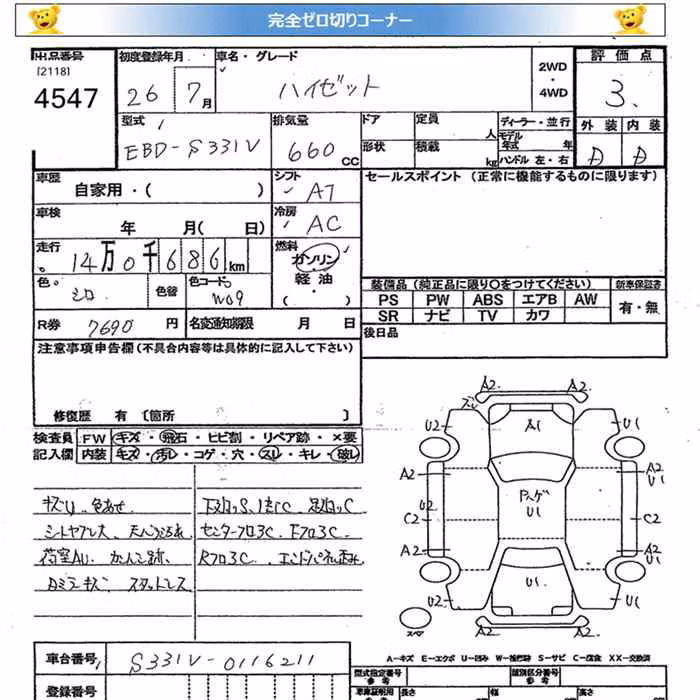 完全ゼロ切りコーナー
出品番号 初度登録年月 車名・グレード 2WD・4WD 評価点
[2118]
4547 26 7月 ハイゼット 3.
型式 排気量 ドア 定員 人 ディーラー・並行 外装 内装
EBD-S331V 660cc 形状 積載 kg モデル年式 年 ハンドル 左・右 D D
車歴 自家用・( ) シフト AT セールスポイント (正常に機能するものに限ります)
車検 年 月( 日) 冷房 AC
走行 14万0千686km 燃料 ガソリン 軽油・( )
色 シロ 色替 色コード W09 装備品(純正品に限り〇をつけてください) 新車保証書
PS PW ABS エアB AW 有・無
SR ナビ TV カワ
R券 7690円 名変通知期限 月 日 後日品
注意事項申告欄(不具合内容等は具体的に記入して下さい)
修復歴 有 〔箇所 〕
検査員 FW キズ・飛石・ヒビ割・リペア跡・×要
記入欄 内装 キズ・汚レ・コゲ・穴・スレ・キレ・破レ
キズU 色あせ
センターフロ3C Fフロ3C
荷室AU
Rフロ3C エンドパネ歪み
スタットレス
A2 A2
U2 A1 U1
A2 A2 U1
U2 U1
C2 C2
A2 A2 U1
U2 U1 U1
スペア A2 A2
A-キズ E-エクボ U-凹み W-補修跡 S-サビ C-腐食 XX-交換済
車台番号 S331V-0116211 型式指定番号 参考 類別区分番号 参考
登録番号 車庫証明用 参考 長さ 幅 高さ